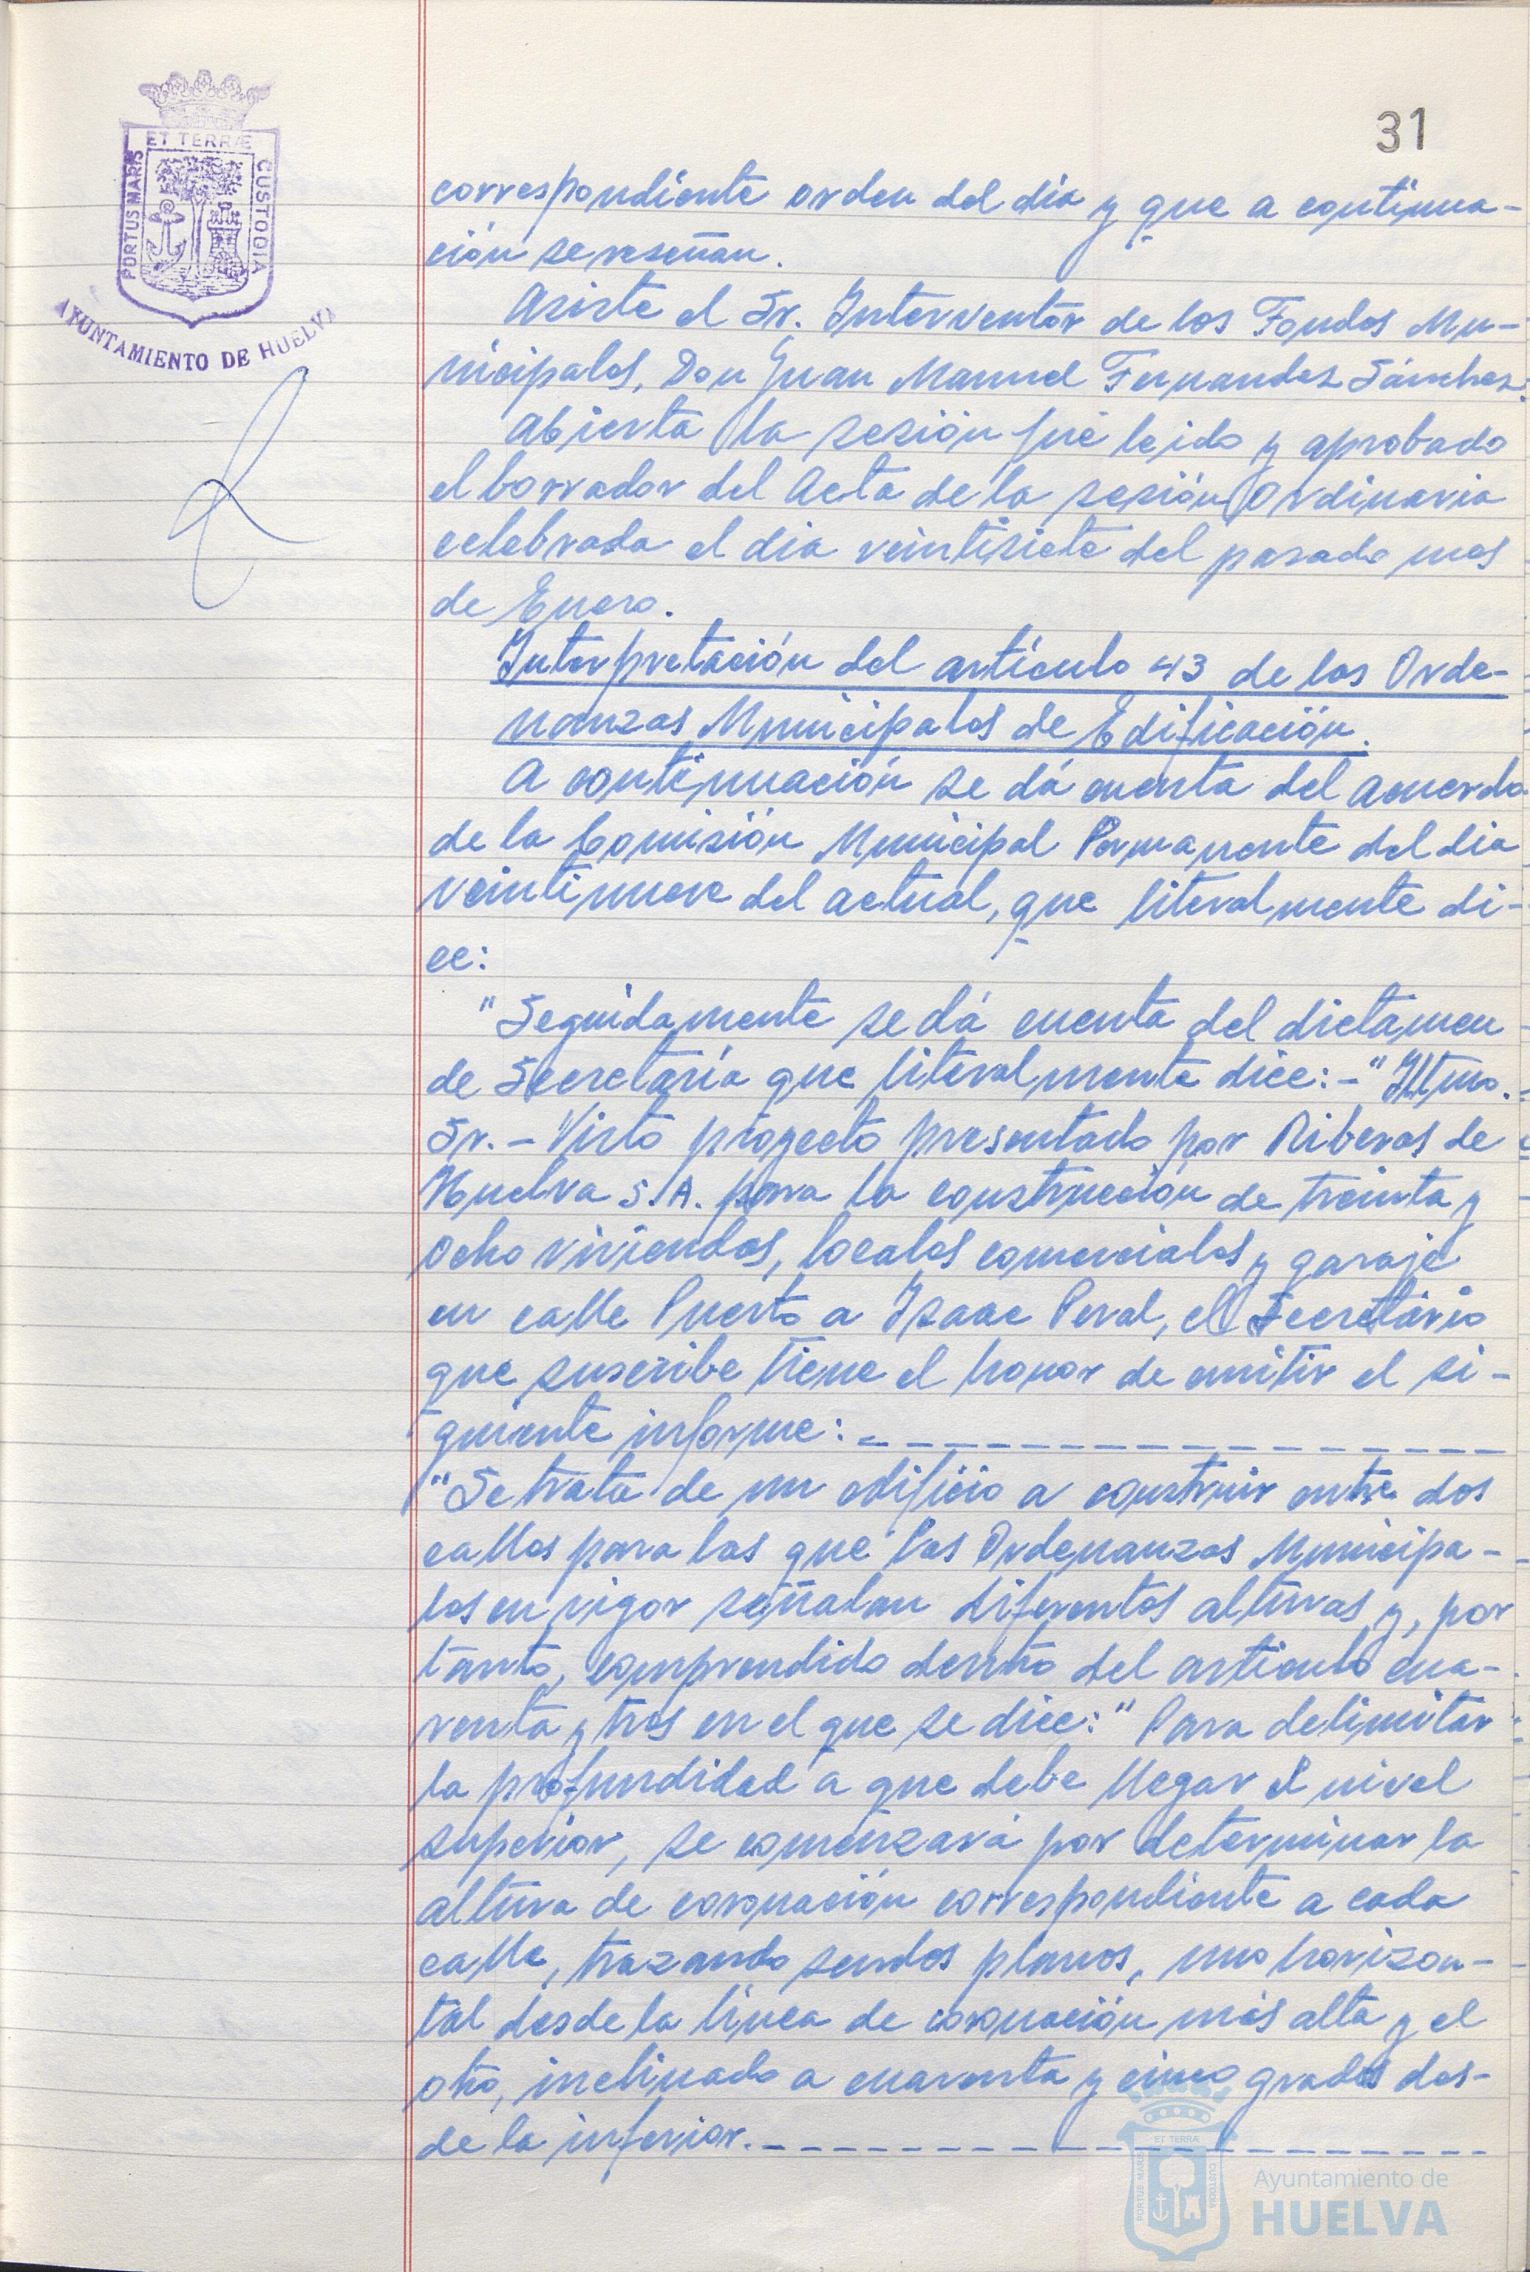 31
ET TERRÆ
PORTUS MARIS
CUSTODIA
AYUNTAMIENTO DE HUELVA
correspondiente orden del dia y que a continua-
ción se reseñan.
Asiste el Sr. Interventor de los Fondos Mu-
nicipales, Don Juan Manuel Fernandez Sánchez.
Abierta la sesión fué leido y aprobado
el borrador del Acta de la sesión Ordinaria
celebrada el dia veintisiete del pasado mes
de Enero.
Interpretación del artículo 43 de las Orde-
nanzas Municipales de Edificación.
A continuación se dá cuenta del acuerdo
de la Comisión Municipal Permanente del dia
veintinueve del actual, que literalmente di-
ce:
"Seguidamente se dá cuenta del dictamen
de Secretaría que literalmente dice:-"Iltmo.
Sr.- Visto proyecto presentado por Riberas de
Huelva S.A. para la construcción de treinta y
ocho viviendas, locales comerciales y garaje
en calle Puerto a Isaac Peral, el Secretario
que suscribe tiene el honor de emitir el si-
guiente informe:-
"Se trata de un edificio a construir entre dos
calles para las que las Ordenanzas Municipa-
les en vigor señalan diferentes alturas y, por
tanto, comprendido dentro del articulo cua-
renta y tres en el que se dice:" Para delimitar
la profundidad a que debe llegar el nivel
superior, se comenzará por determinar la
altura de coronación correspondiente a cada
calle, trazando sendos planos, uno horizon-
tal desde la línea de coronación más alta y el
otro, inclinado a cuarenta y cinco grados des-
de la inferior.-
ET TERRÆ
PORTUS MARIS
CUSTODIA
Ayuntamiento de
HUELVA